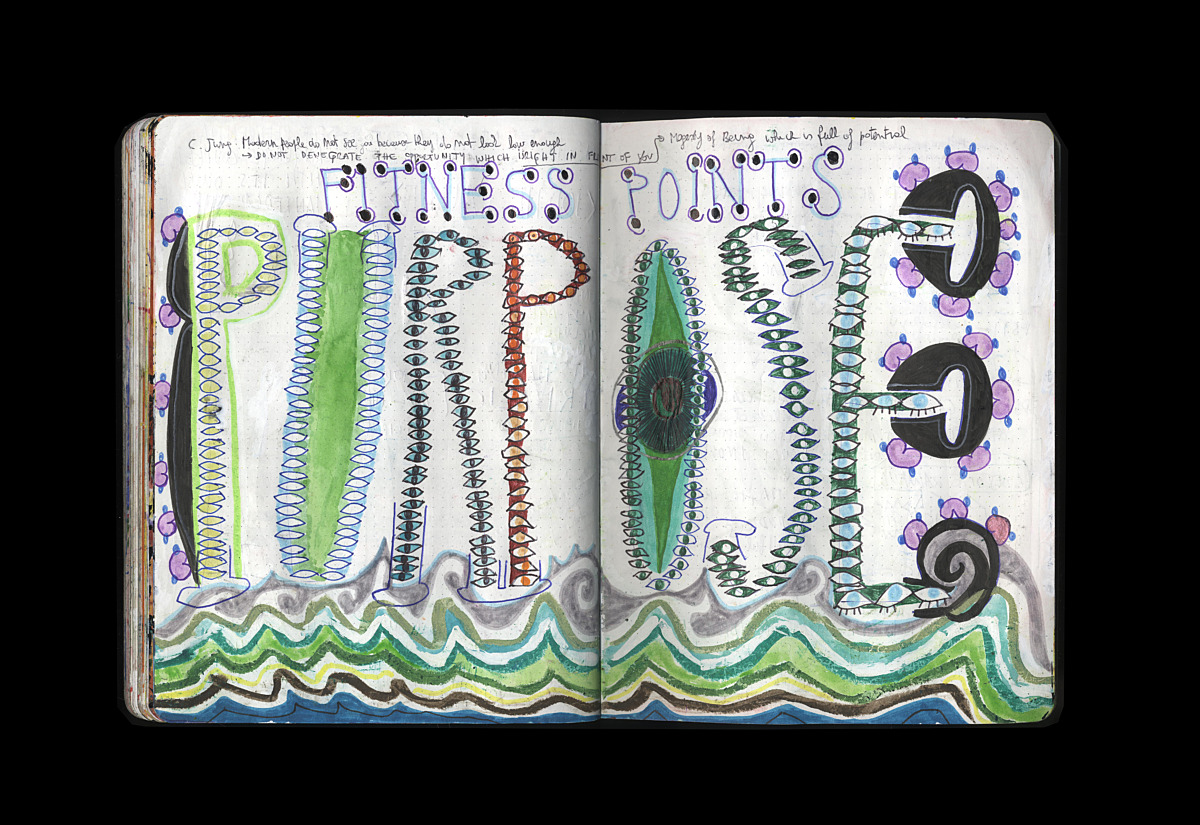 C. Jung: Modern people do not see because they do not look low enough
→ Majesty of Being which is full of potential
→ DO NOT DENEGRATE THE OPORTUNITY WHICH IN FRONT OF YOU
FITNESS POINTS
PURPOSE